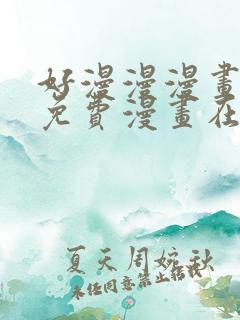 好漫漫漫畫
免費漫畫在
夏天周婉秋
未经同意禁止转载